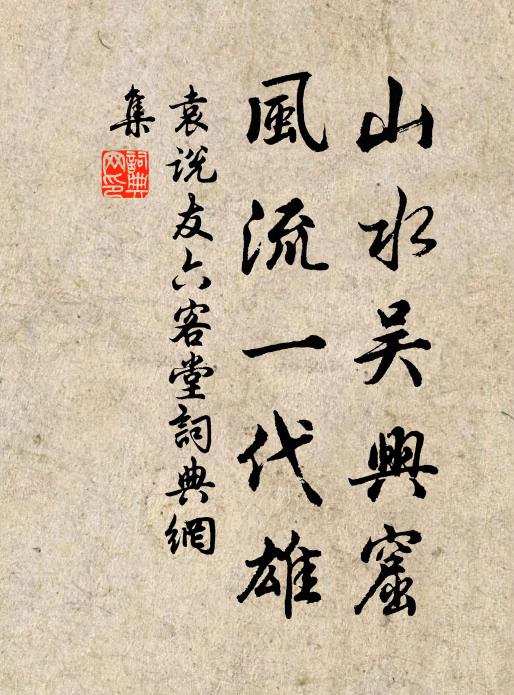 山水吴興窟
風流一代雄
袁説友六客堂詞典網
集
詞典网印